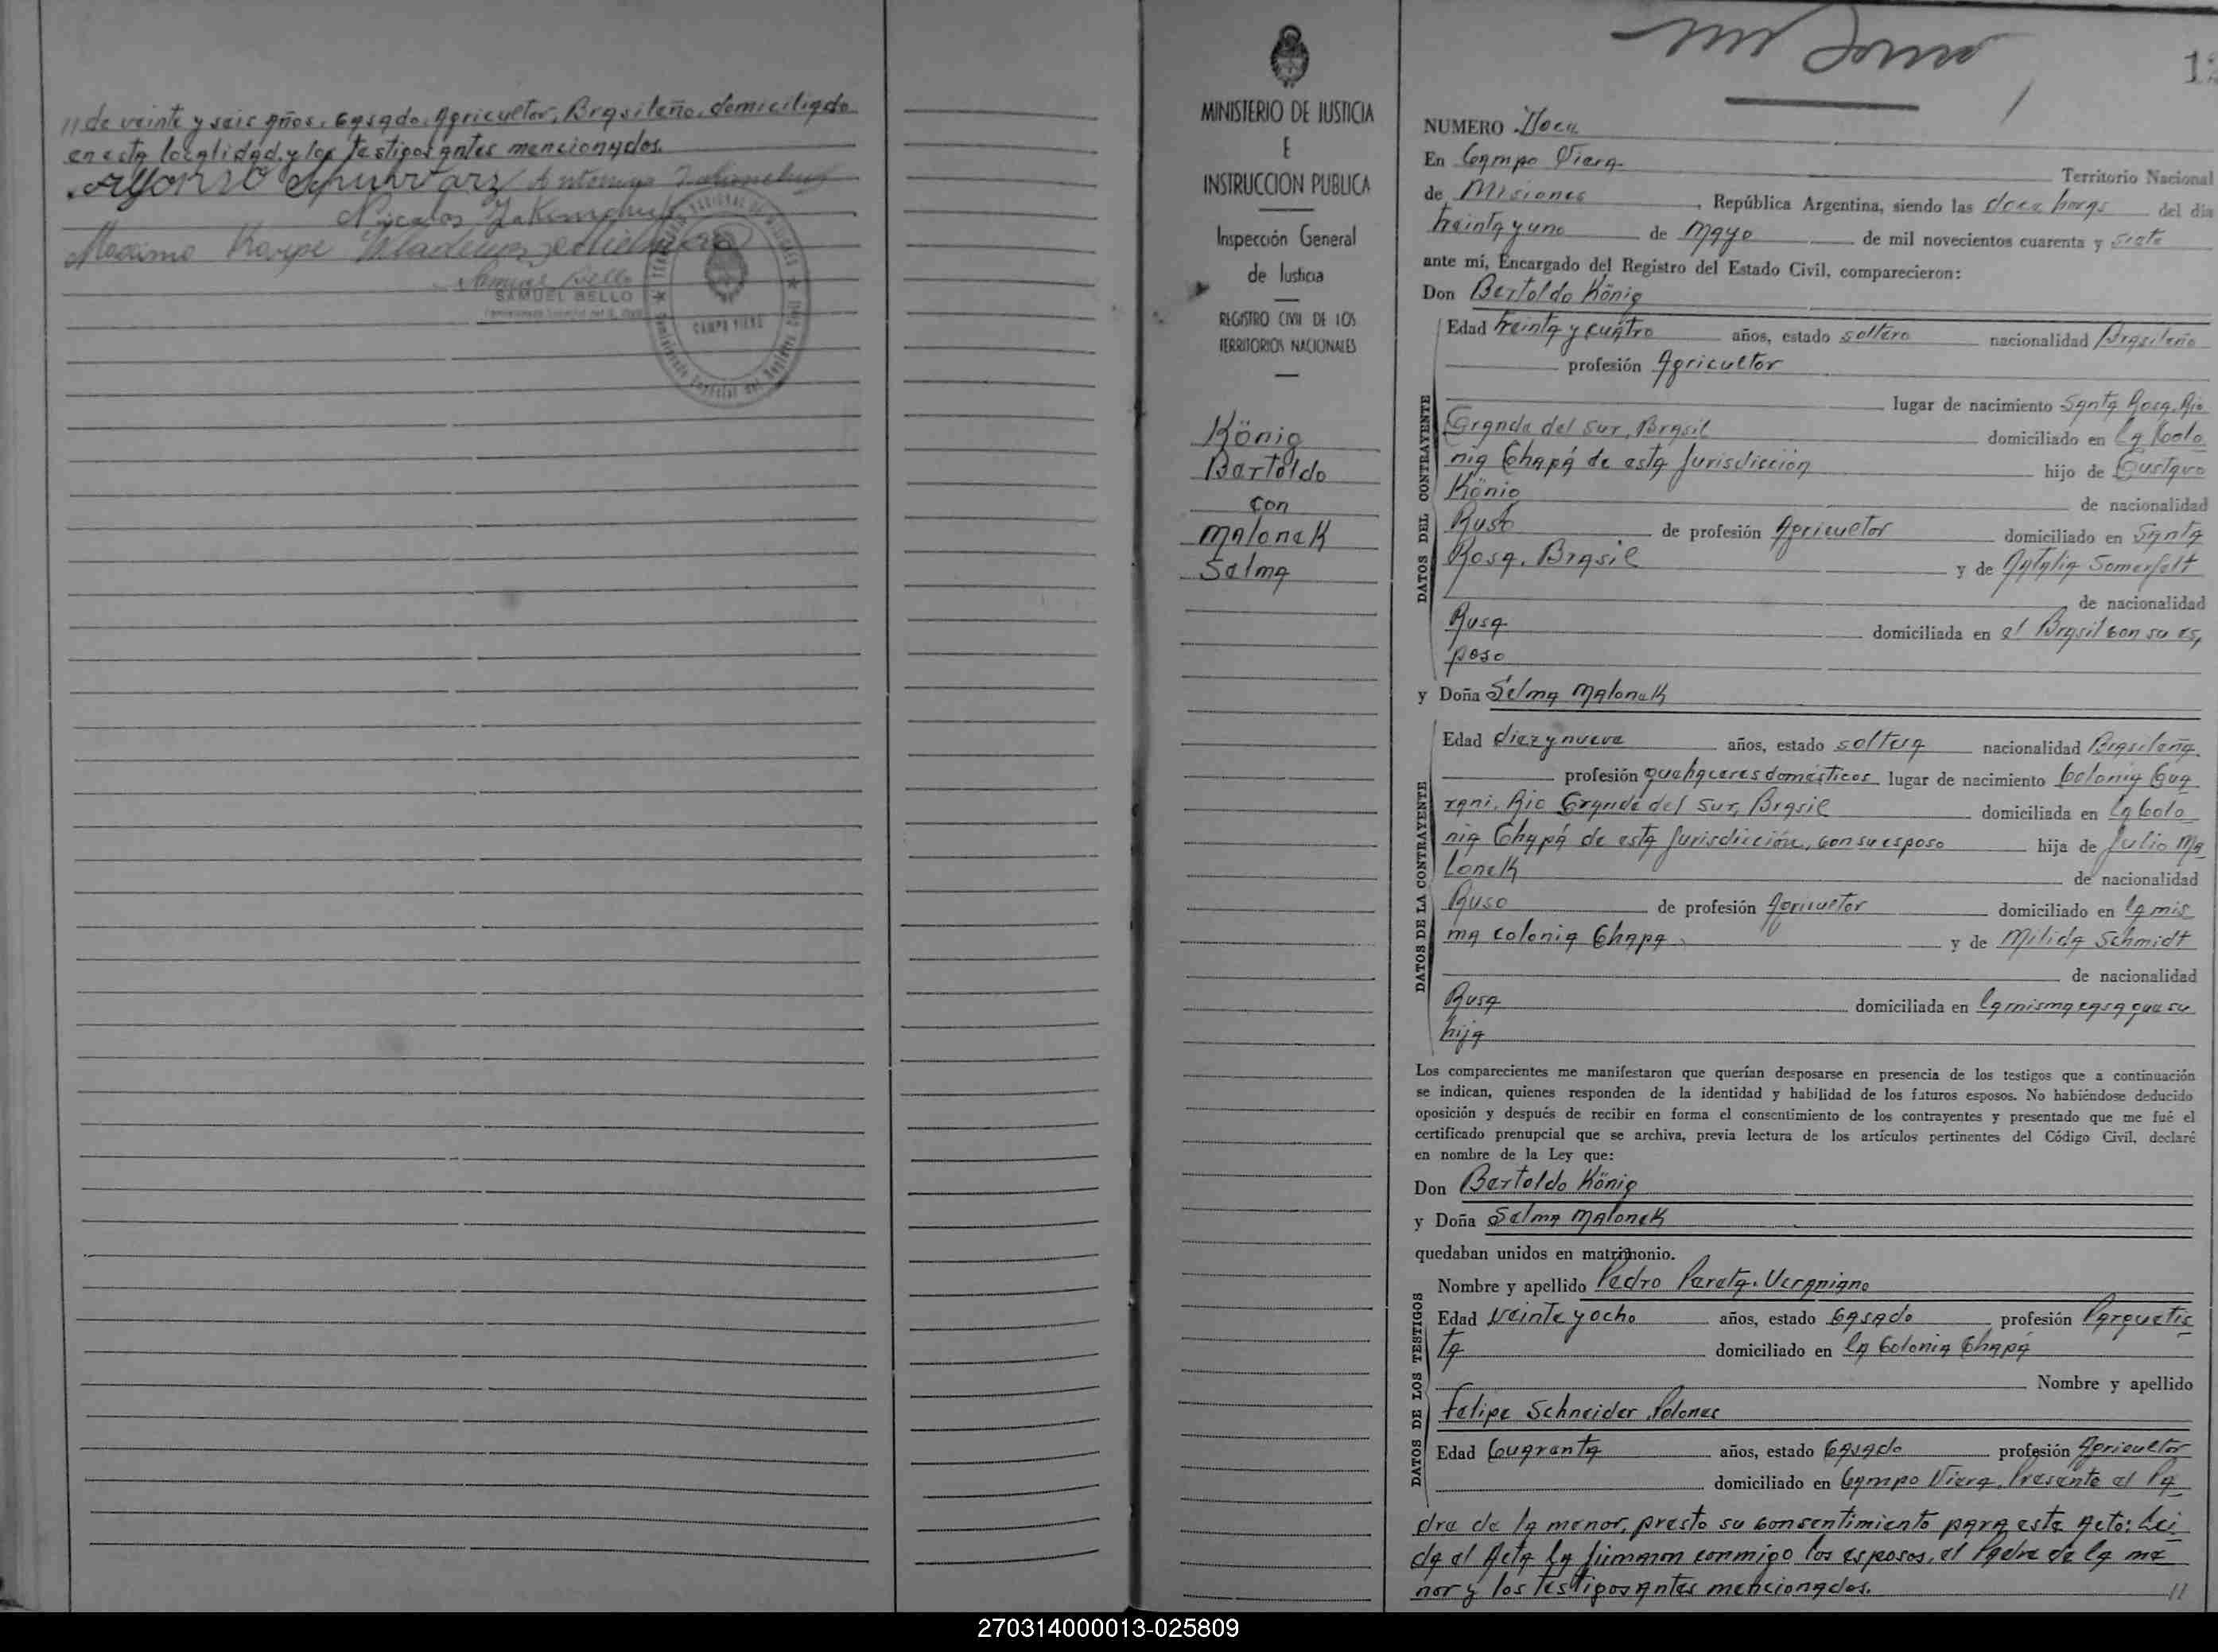 // de veinte y seis años, Casado, Agricultor, Brasileño, domiciliado
en esta localidad, y los testigos antes mencionados.
Alfonso Schwarz Antonio
Nicolas
Maximo Karpe
SAMUEL BELLO
CAMPO VIERA
MINISTERIO DE JUSTICIA
E
INSTRUCCION PUBLICA
Inspección General
de Justicia
REGISTRO CIVIL DE LOS
TERRITORIOS NACIONALES
König
Bertoldo
con
Malonek
Selma
12
NUMERO Doce
En Campo Viera Territorio Nacional
de Misiones, República Argentina, siendo las doce horas del dia
treinta y uno de Mayo de mil novecientos cuarenta y siete
ante mí, Encargado del Registro del Estado Civil, comparecieron:
Don Bertoldo König
DATOS DEL CONTRAYENTE
Edad treinta y cuatro años, estado soltero nacionalidad Brasileño
profesión Agricultor
lugar de nacimiento Santa Rosa, Rio
Grande del Sur, Brasil domiciliado en la Colo
nia Chapá de esta Jurisdicción hijo de Gustavo
König de nacionalidad
Ruso de profesión Agricultor domiciliado en Santa
Rosa, Brasil y de Natalia Somerfelt
de nacionalidad
Rusa domiciliada en el Brasil con su es,
poso
y Doña Selma Malonek
DATOS DE LA CONTRAYENTE
Edad diez y nueve años, estado soltera nacionalidad Brasileña
profesión quehaceres domésticos lugar de nacimiento Colonia Gua
rani, Rio Grande del Sur, Brasil domiciliada en la Colo
nia Chapá de esta Jurisdicción, con su esposo hija de Julio Ma
lonek de nacionalidad
Ruso de profesión Agricultor domiciliado en la mis
ma colonia Chapa, y de Milida Schmidt
de nacionalidad
Rusa domiciliada en la misma casa que su
hija
Los comparecientes me manifestaron que querían desposarse en presencia de los testigos que a continuación
se indican, quienes responden de la identidad y habilidad de los futuros esposos. No habiéndose deducido
oposición y después de recibir en forma el consentimiento de los contrayentes y presentado que me fué el
certificado prenupcial que se archiva, previa lectura de los artículos pertinentes del Código Civil, declaré
en nombre de la Ley que:
Don Bertoldo König
y Doña Selma Malonek
quedaban unidos en matrimonio.
DATOS DE LOS TESTIGOS
Nombre y apellido Pedro Pereta, Ucraniano
Edad veinte y ocho años, estado Casado profesión Parquetis
ta domiciliado en la Colonia Chapá
Nombre y apellido
Felipe Schneider, Polones
Edad Cuarenta años, estado Casado profesión Agricultor
domiciliado en Campo Viera. Presente el Pa
dre de la menor, presto su consentimiento para este Acto: Lei
da el Acta la firmaron conmigo los esposos, el Padre de la me
nor y los testigos antes mencionados. //
270314000013-025809